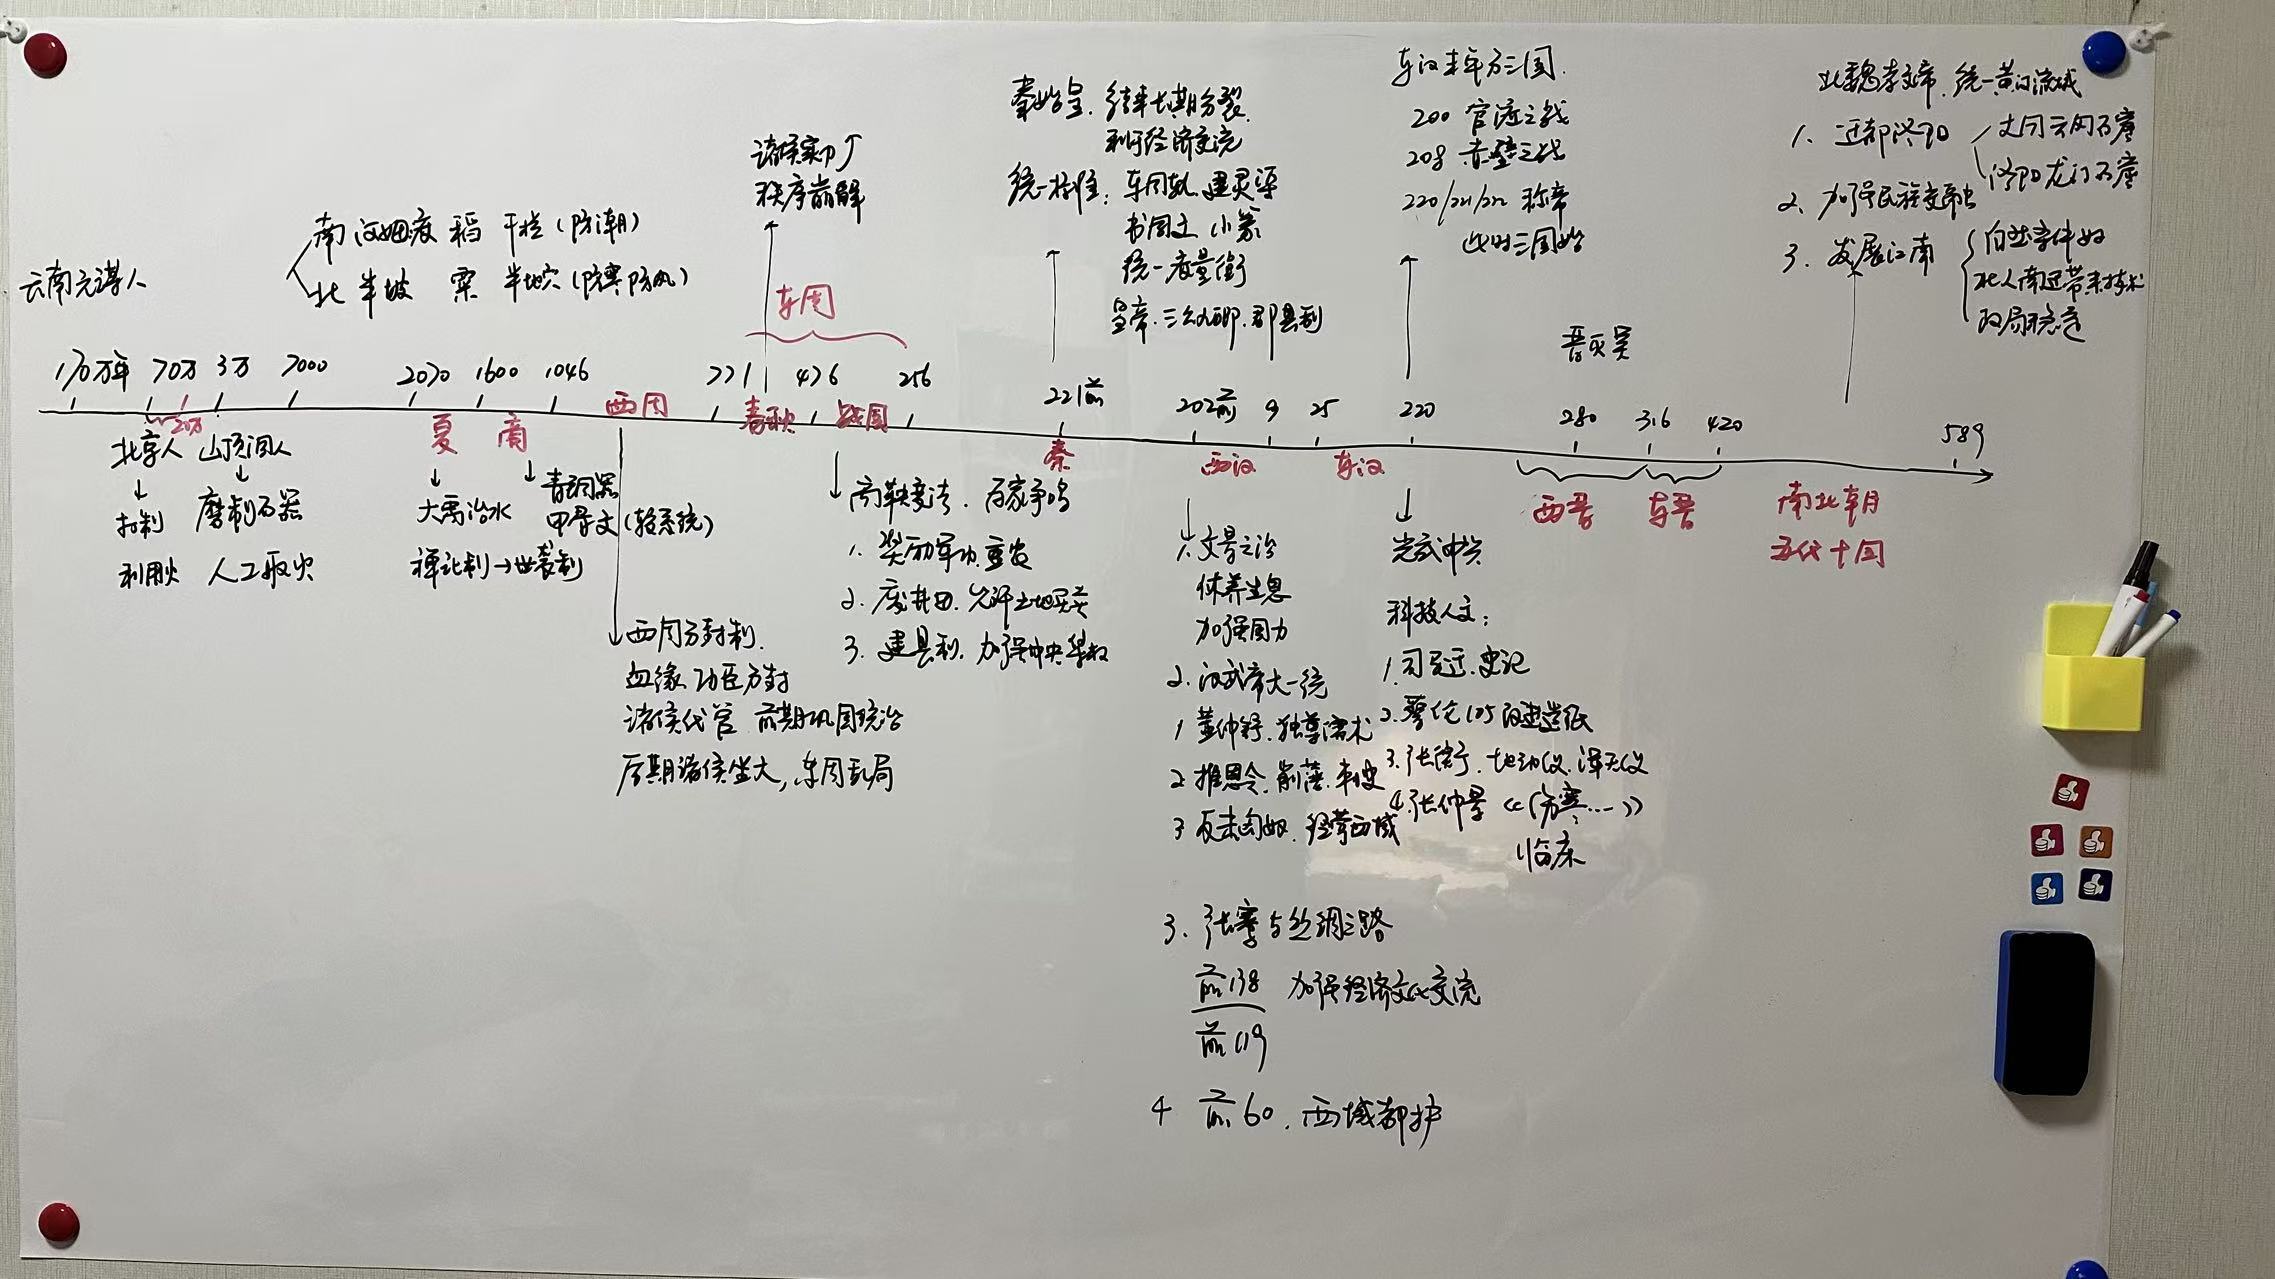 云南元谋人
南 河姆渡 稻 干栏(防潮)
北 半坡 粟 半地穴(防寒防风)
诸侯实力↑
秩序崩解
东周
秦始皇. 结束长期分裂.
利于经济交流
统一标准: 车同轨. 建灵渠
书同文 小篆
统一度量衡
皇帝. 三公九卿. 郡县制
东汉末年分三国.
200 官渡之战
208 赤壁之战
220/221/222 称帝
此时三国始
晋灭吴
北魏孝文帝. 统一黄河流域
1. 迁都洛阳 大同云冈石窟
洛阳龙门石窟
2. 加强民族交融
3. 发展江南 自然条件好
北人南迁带来技术
政局稳定
170万年 70万 3万 7000 2070 1600 1046 771 476 256 221前 202前 9 25 220 280 316 420 589
20万 夏 商 西周 春秋 战国 秦 西汉 东汉 西晋 东晋 南北朝
五代十国
北京人 山顶洞人
↓ ↓
打制 磨制石器
利用火 人工取火
↓
大禹治水
禅让制→世袭制
↓ 青铜器
甲骨文(较系统)
西周分封制.
血缘 功臣分封
诸侯代管 前期巩固统治
后期诸侯坐大, 东周乱局
商鞅变法. 百家争鸣
1. 奖励军功. 重农
2. 废井田. 允许土地买卖
3. 建县制. 加强中央集权
1. 文景之治
休养生息
加强国力
2. 汉武帝大一统
1 董仲舒. 独尊儒术
2 推恩令. 削藩. 刺史
3 反击匈奴. 经营西域
3. 张骞与丝绸之路
前138 加强经济文化交流
前119
4 前60. 西域都护
光武中兴
科技人文:
1. 司马迁. 史记
2. 蔡伦 105 改进造纸
3. 张衡. 地动仪. 浑天仪
4. 张仲景《伤寒...》
临床